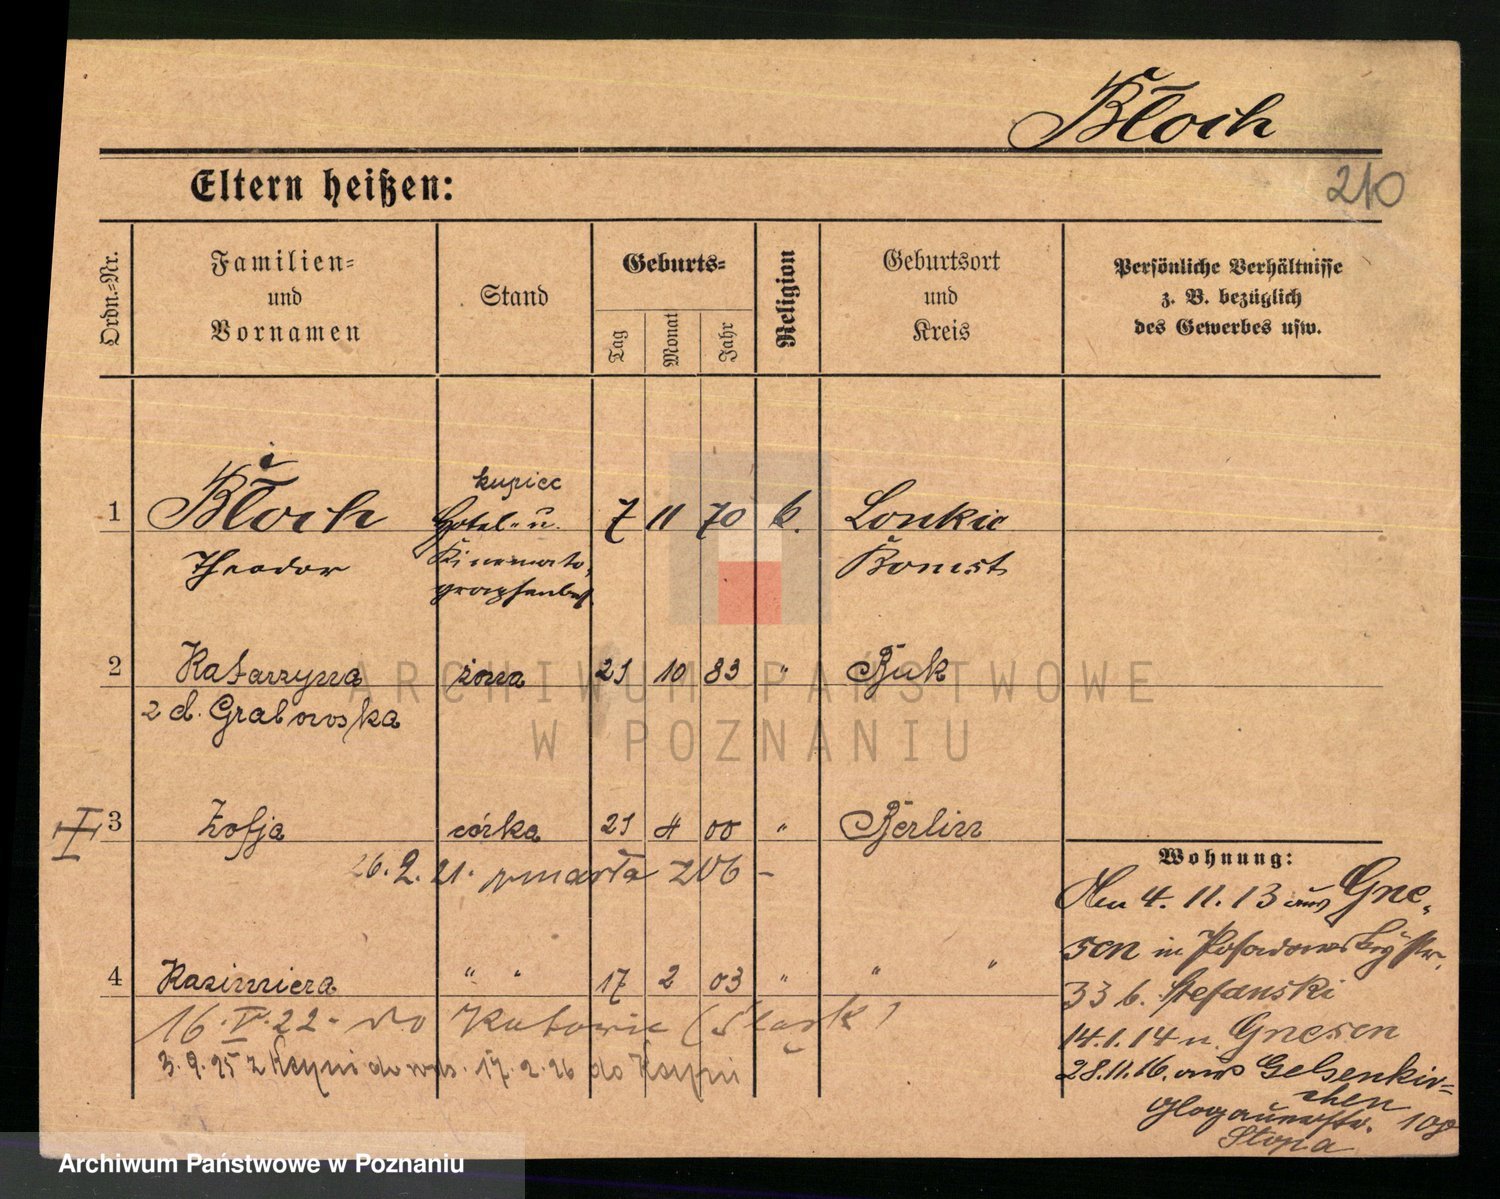 Błoch
210
Eltern heißen:
Ordn.-Nr.
Familien-
und
Vornamen
Stand
Geburts-
Tag
Monat
Jahr
Religion
Geburtsort
und
Kreis
Persönliche Verhältnisse
z. B. bezüglich
des Gewerbes usw.
kupiec
1 Błoch Hotel- u. 7 11 70 k. Lonkie
Theodor Kinemato- Bomst
2 Katarzyna żona 21 10 83 " Buk
z d. Grabowska
3 Zofja córka 21 4 00 " Berlin
26.2.21. zmarła 206 -
4 Kazimiera " " 17 2 03 " " "
16.V.22 - do Katowic (Śląsk)
3.9.25 z Kcyni do 17.2.26 do Kcyni
Wohnung:
4.11.13 aus Gne-
sen in Posadowskystr.
33 b. Stefanski
14.1.14 n. Gnesen
28.11.16. aus Gelsenkir-
chen
Glogauerstr. 108
Stopa
ARCHIWUM PAŃSTWOWE
W POZNANIU
Archiwum Państwowe w Poznaniu